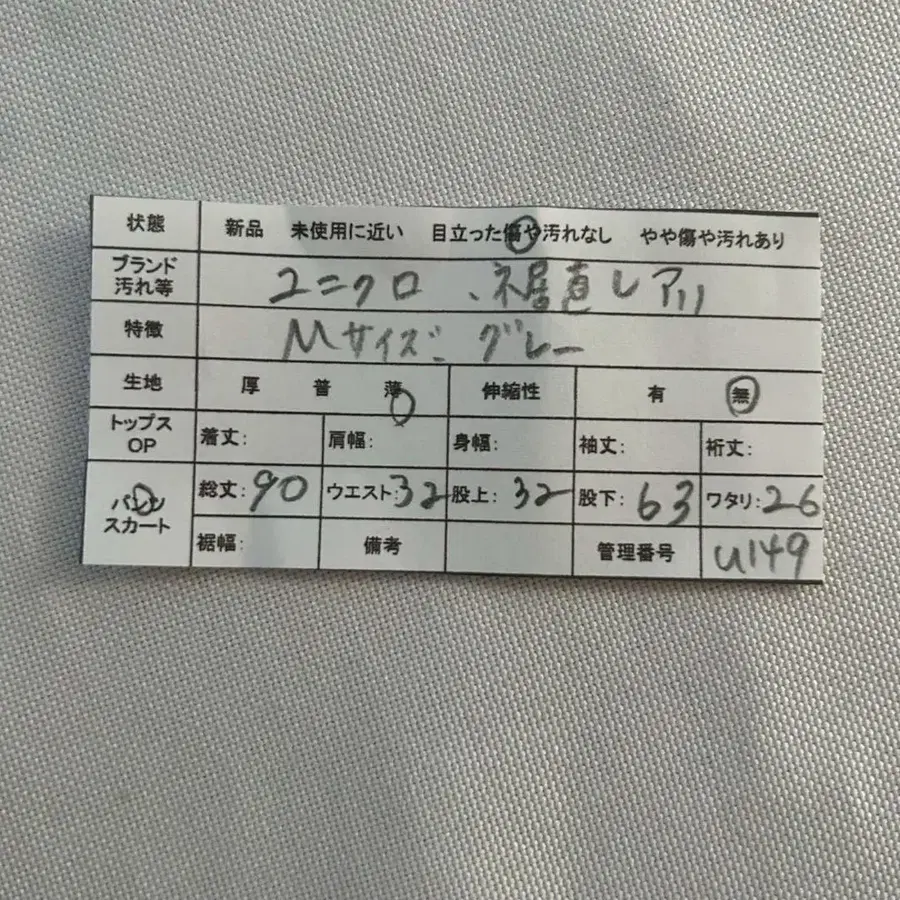 状態 新品 未使用に近い 目立った傷や汚れなし やや傷や汚れあり
ブランド
汚れ等 ユニクロ、裾直しアリ
特徴 Mサイズ、グレー
生地 厚 普 薄 伸縮性 有 無
トップス
OP 着丈: 肩幅: 身幅: 袖丈: 裄丈:
パンツ
スカート 総丈:90 ウエスト:32 股上:32 股下:63 ワタリ:26
裾幅: 備考 管理番号 U149